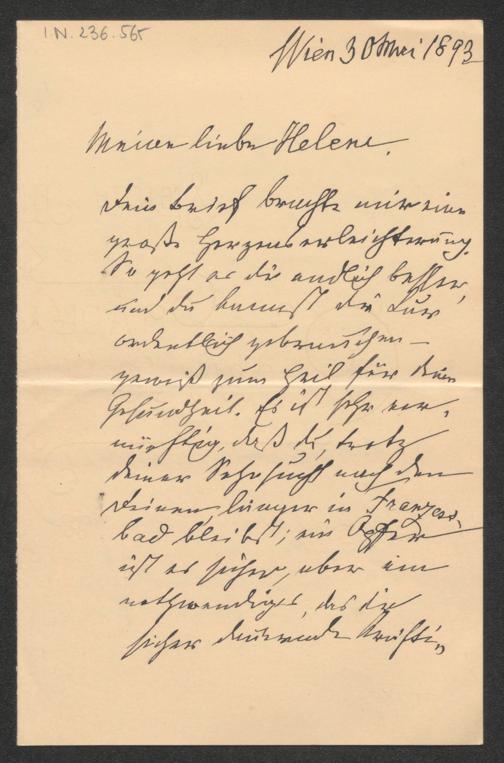 I.N. 236.565
Wien 30 Mai 1893
Meine liebe Helene.
Dein Brief brachte mir eine
große Herzenserleichterung.
So geht es dir endlich besser,
und du kannst die Kur
ordentlich gebrauchen –
gewiß zum Heil für deine
Gesundheit. Es ist sehr ver-
nünftig, daß du, trotz
deiner Sehnsucht nach den
Deinen, länger in Franzens-
bad bleibst; ein Opfer
ist es sicher, aber ein
nothwendiges, das dir
sicher dauernde Kräfti-